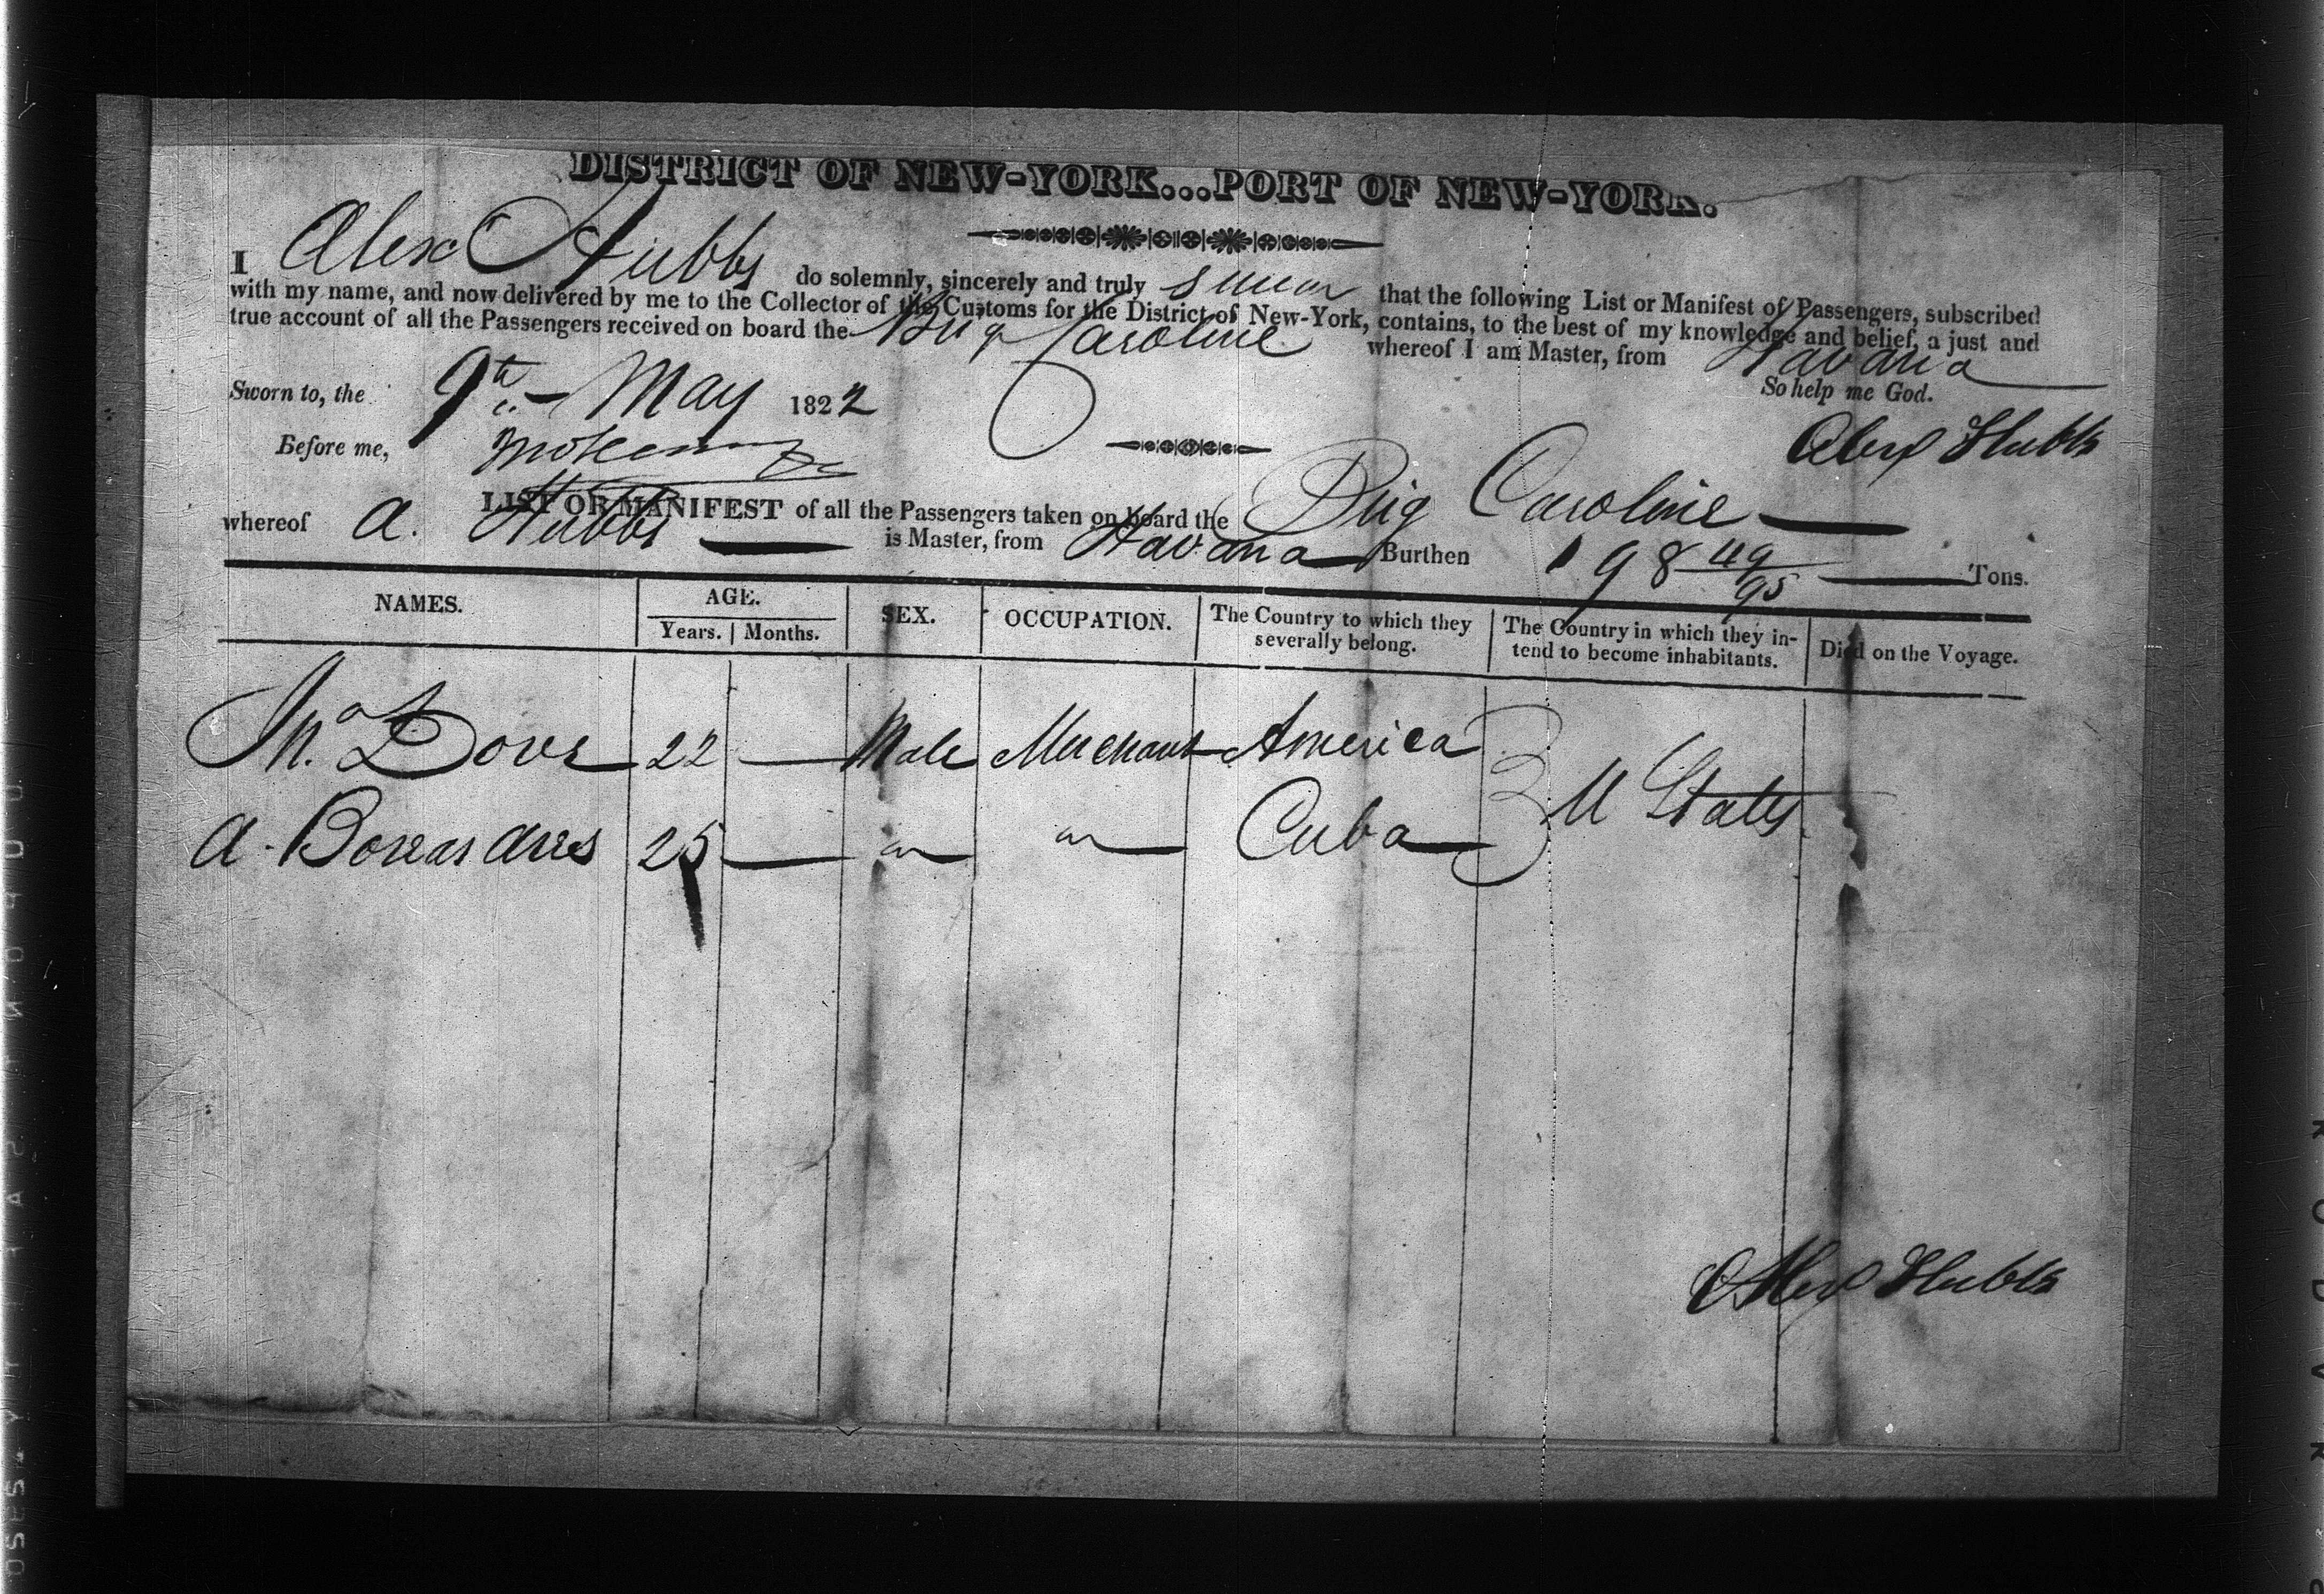 DISTRICT OF NEW-YORK...PORT OF NEW-YORK.
I Alex Hubbs do solemnly, sincerely and truly swear that the following List or Manifest of Passengers, subscribed
with my name, and now delivered by me to the Collector of the Customs for the District of New-York, contains, to the best of my knowledge and belief, a just and
true account of all the Passengers received on board the Brig Caroline whereof I am Master, from Havana
Sworn to, the 9th May 1822 So help me God.
Before me, Alex Hubbs
LIST OR MANIFEST of all the Passengers taken on board the Brig Caroline
whereof A. Hubbs is Master, from Havana Burthen 198 49/95 Tons.
NAMES. AGE. SEX. OCCUPATION. The Country to which they severally belong. The Country in which they intend to become inhabitants. Died on the Voyage.
Years. Months.
Jno. Dove 22 Male Merchant America
U States
A. 25 Cuba
Alex Hubbs